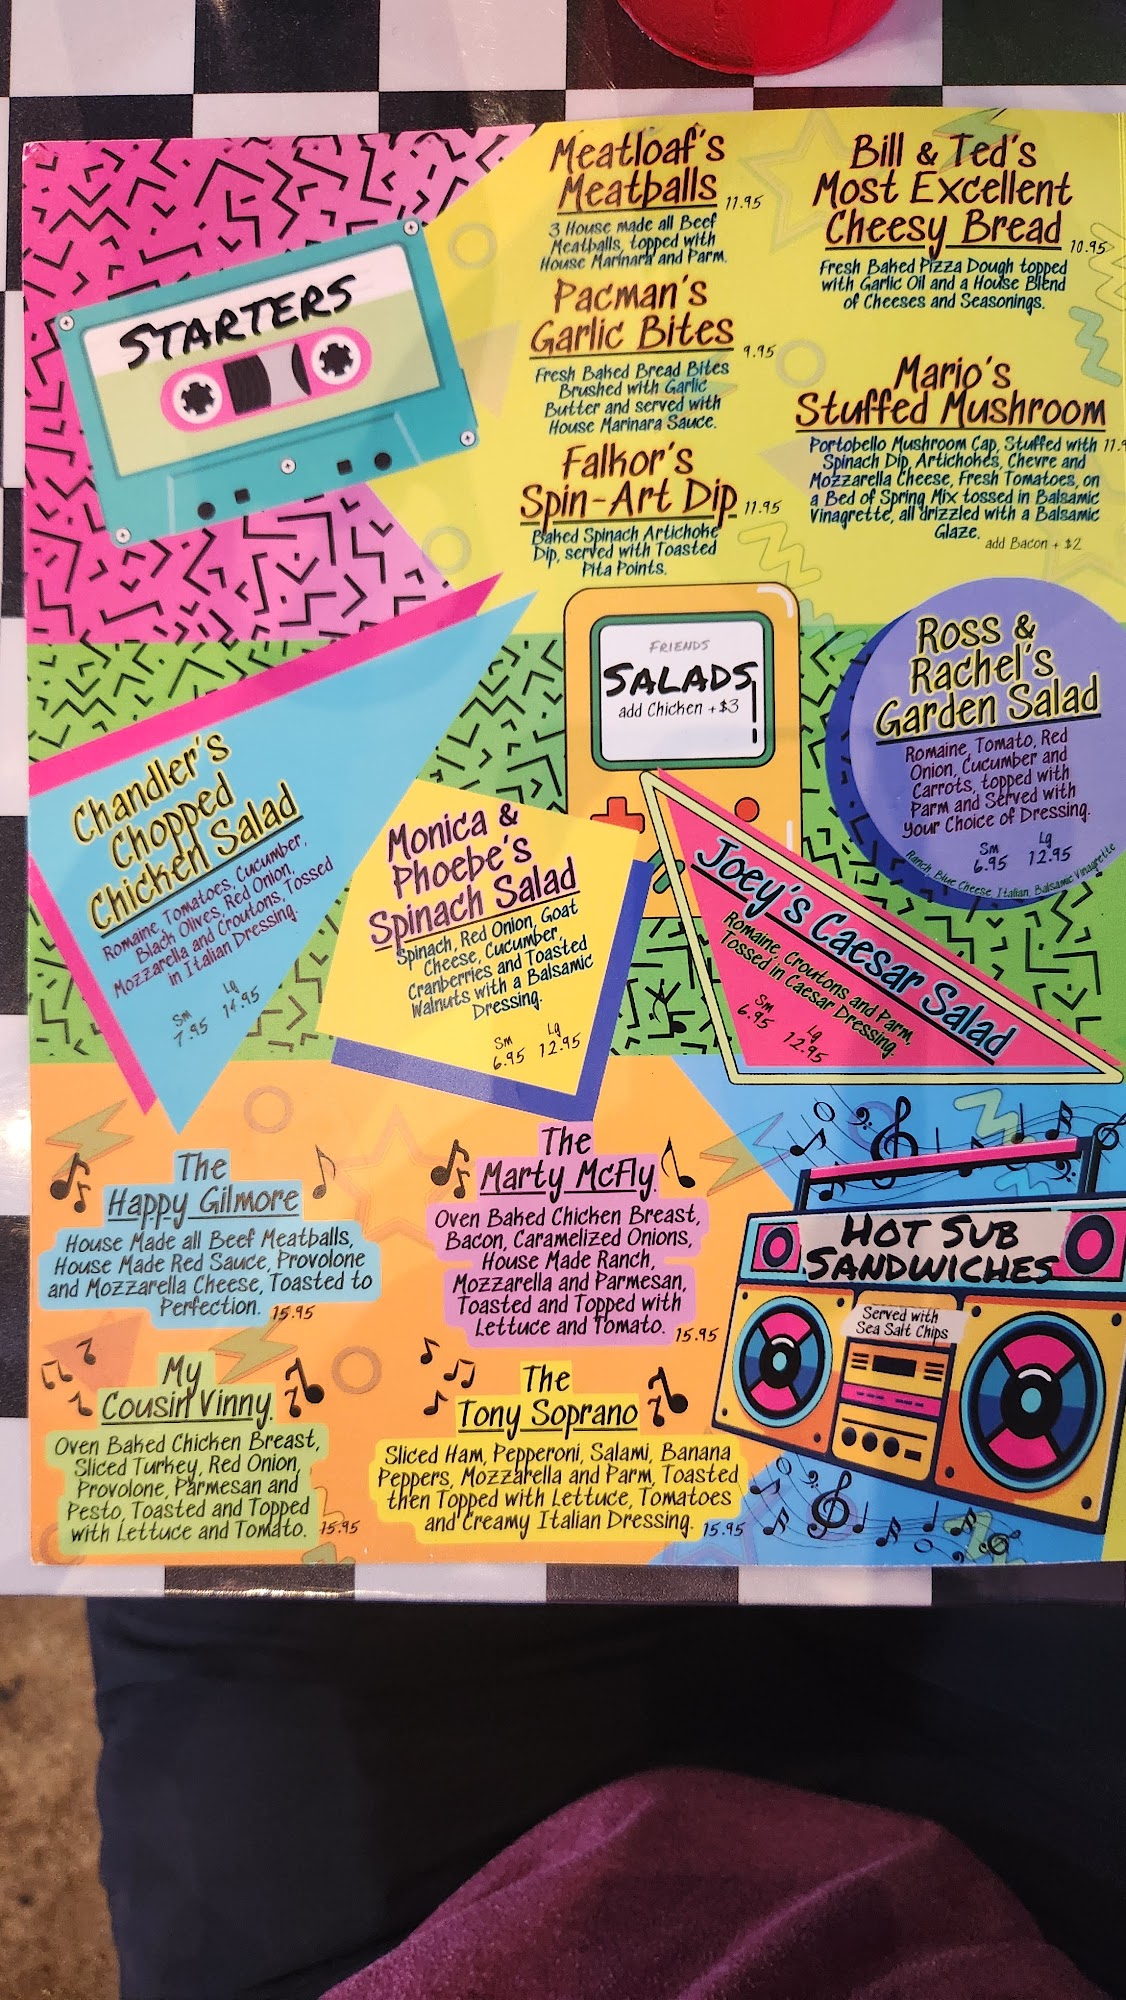 STARTERS
Meatloaf's
Meatballs 11.95
3 House made all Beef
Meatballs, topped with
House Marinara and Parm.
Pacman's
Garlic Bites 9.95
Fresh Baked Bread Bites
Brushed with Garlic
Butter and served with
House Marinara Sauce.
Falkor's
Spin-Art Dip 11.95
Baked Spinach Artichoke
Dip, served with Toasted
Pita Points.
Bill & Ted's
Most Excellent
Cheesy Bread 10.95
Fresh Baked Pizza Dough topped
with Garlic Oil and a House Blend
of Cheeses and Seasonings.
Mario's
Stuffed Mushroom
Portobello Mushroom Cap, Stuffed with
Spinach Dip, Artichokes, Chevre and
Mozzarella Cheese, Fresh Tomatoes, on
a Bed of Spring Mix tossed in Balsamic
Vinagrette, all drizzled with a Balsamic
Glaze.
add Bacon + $2
FRIENDS
SALADS
add Chicken +$3
Chandler's
Chopped
Chicken Salad
Romaine, Tomatoes, Cucumber,
Black Olives, Red Onion,
Mozzarella and Croutons, Tossed
in Italian Dressing.
Sm Lg
7.95 14.95
Monica &
Phoebe's
Spinach Salad
Spinach, Red Onion, Goat
Cheese, Cucumber,
Cranberries and Toasted
Walnuts with a Balsamic
Dressing.
Sm Lg
6.95 12.95
Joey's Caesar Salad
Romaine, Croutons and Parm
Tossed in Caesar Dressing.
Sm Lg
6.95 12.95
Ross &
Rachel's
Garden Salad
Romaine, Tomato, Red
Onion, Cucumber and
Carrots, topped with
Parm and Served with
your Choice of Dressing.
Sm Lg
6.95 12.95
Ranch, Blue Cheese, Italian, Balsamic Vinagrette
HOT SUB
SANDWICHES
Served with
Sea Salt Chips
The
Happy Gilmore
House Made all Beef Meatballs,
House Made Red Sauce, Provolone
and Mozzarella Cheese, Toasted to
Perfection. 15.95
The
Marty McFly
Oven Baked Chicken Breast,
Bacon, Caramelized Onions,
House Made Ranch,
Mozzarella and Parmesan,
Toasted and Topped with
Lettuce and Tomato. 15.95
My
Cousin Vinny
Oven Baked Chicken Breast,
Sliced Turkey, Red Onion,
Provolone, Parmesan and
Pesto, Toasted and Topped
with Lettuce and Tomato. 15.95
The
Tony Soprano
Sliced Ham, Pepperoni, Salami, Banana
Peppers, Mozzarella and Parm, Toasted
then Topped with Lettuce, Tomatoes
and Creamy Italian Dressing. 15.95